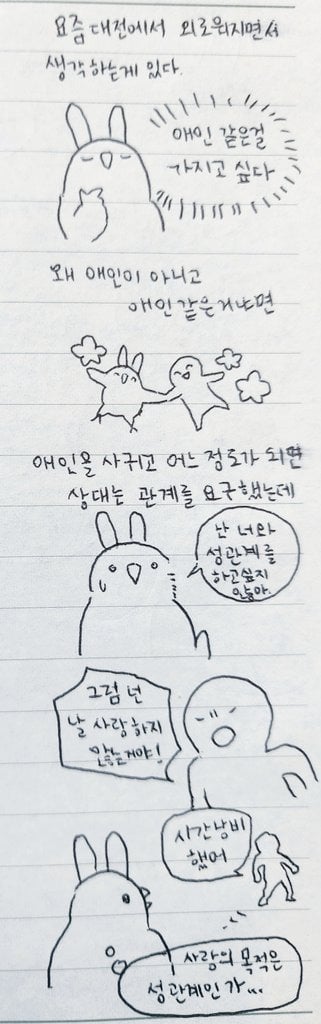 요즘 대전에서 외로워지면서
생각하는게 있다.
애인 같은걸
가지고 싶다
왜 애인이 아니고
애인 같은거냐면
애인을 사귀고 어느 정도가 되면
상대는 관계를 요구했는데
난 너와
성관계를
하고싶지
않아.
그럼 넌
날 사랑하지
않는거야!
시간낭비
했어
사랑의 목적은
성관계인가...